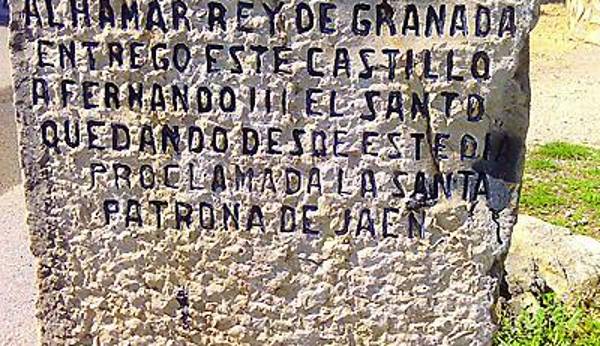 ALHAMAR REY DE GRANADA
ENTREGO ESTE CASTILLO
A FERNANDO III EL SANTO
QUEDANDO DESDE ESTE DIA
PROCLAMADA LA SANTA
PATRONA DE JAEN